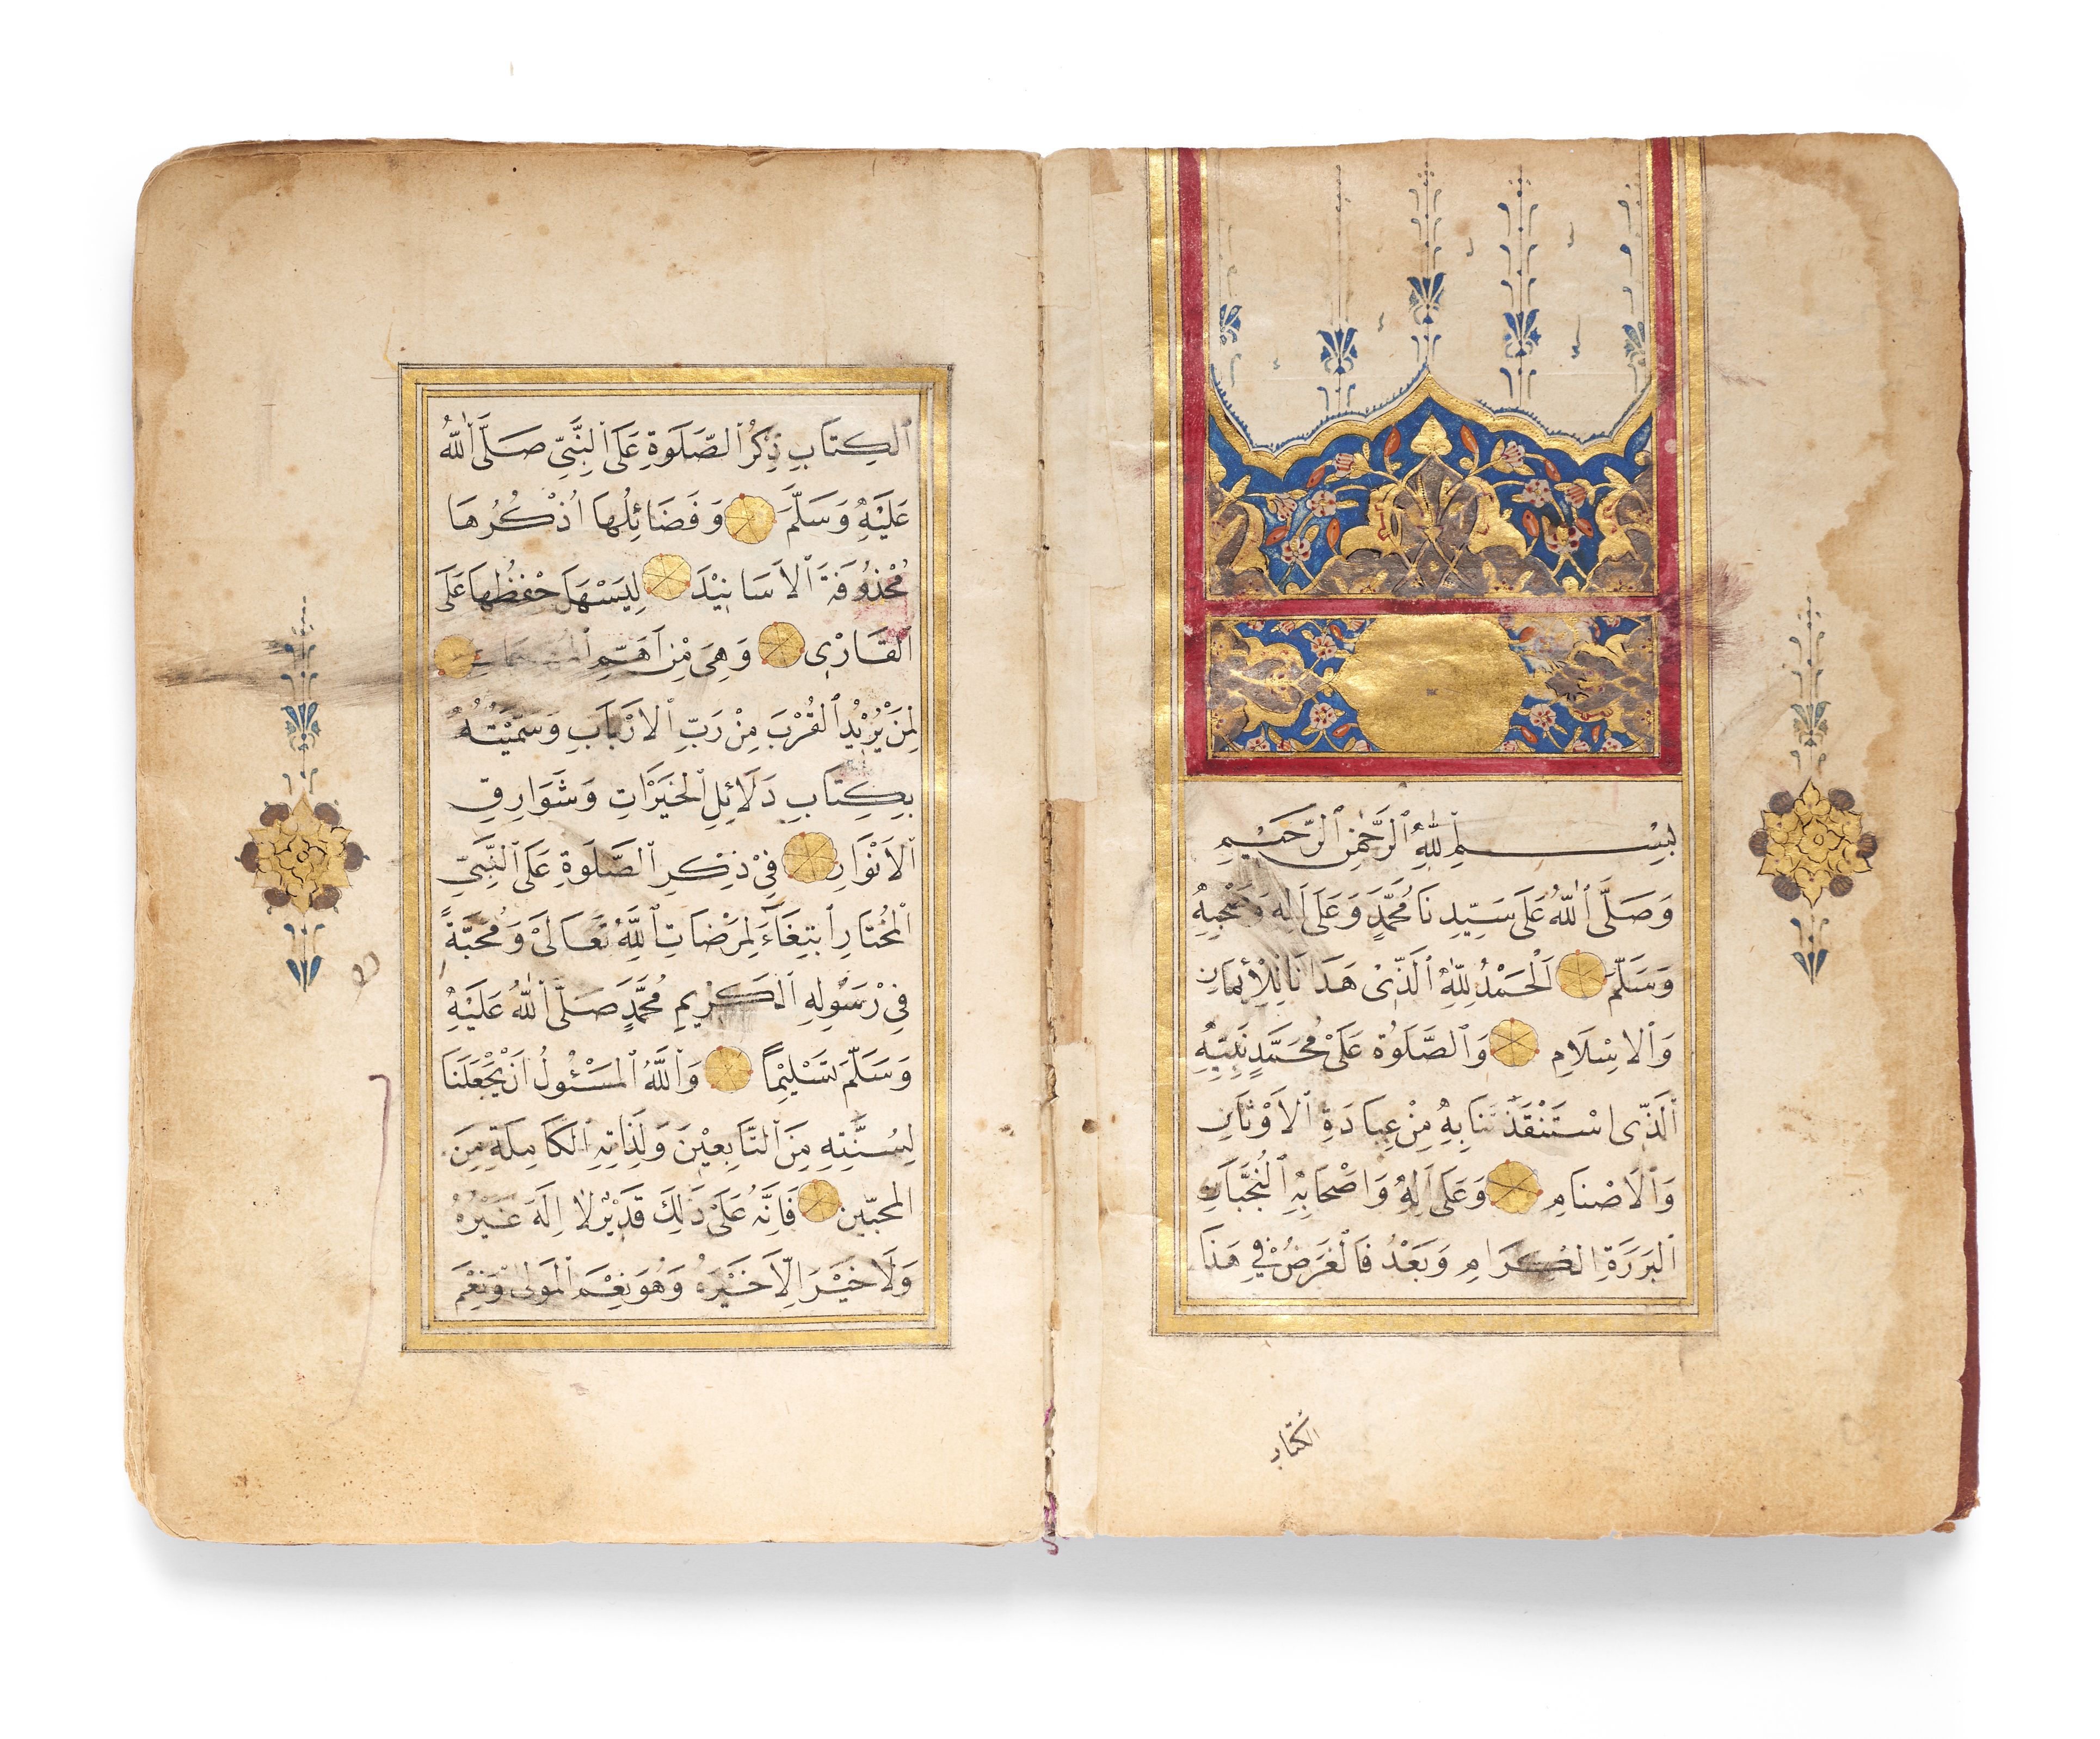 بِسْمِ ٱللّٰهِ ٱلرَّحْمٰنِ ٱلرَّحِيْمِ
وَصَلَّى ٱللّٰهُ عَلَى سَيِّدِنَا مُحَمَّدٍ وَعَلَى اٰلِهِ وَصَحْبِهِ
وَسَلَّمَ اَلْحَمْدُ لِلّٰهِ ٱلَّذِىْ هَدَانَا لِلْاِيْمَانِ
وَٱلْاِسْلَامِ وَٱلصَّلَوٰةُ عَلَىْ مُحَمَّدٍ نَبِيِّهِ
ٱلَّذِى اسْتَنْقَذَنَا بِهِ مِنْ عِبَادَةِ ٱلْاَوْثَانِ
وَٱلْاَصْنَامِ وَعَلَى اٰلِهِ وَاَصْحَابِهِ ٱلنُّجَبَاءِ
ٱلْبَرَرَةِ ٱلْكِرَامِ وَبَعْدُ فَالْغَرَضُ فِيْ هَذَا
الكتاب
ٱلْكِتَابِ ذِكْرُ ٱلصَّلَوةِ عَلَى ٱلنَّبِىِّ صَلَّى ٱللّٰهُ
عَلَيْهِ وَسَلَّمَ وَفَضَائِلُهَا اُذْكُرُهَا
مَحْذُوْفَةَ ٱلْاَسَانِيْدَ لِيَسْهَلَ حِفْظُهَا عَلَى
ٱلْقَارْئِ وَهِىَ مِنْ اَهَمِّ ٱلْمُهِمَّاتِ
لِمَنْ يُرِيْدُ ٱلْقُرْبَ مِنْ رَبِّ ٱلْاَرْبَابِ وَسَمَّيْتُهُ
بِكِتَابِ دَلَائِلِ ٱلْخَيْرَاتِ وَشَوَارِقِ
ٱلْاَنْوَارِ فِيْ ذِكْرِ ٱلصَّلَوةِ عَلَى ٱلنَّبِىِّ
ٱلْمُخْتَارِ ٱبْتِغَاءً لِمَرْضَاتِ ٱللّٰهِ تَعَالَىْ وَمُحَبَّةً
فِيْ رَسُوْلِهِ ٱلْكَرِيْمِ مُحَمَّدٍ صَلَّى ٱللّٰهُ عَلَيْهِ
وَسَلَّمَ تَسْلِيْمًا وَٱللّٰهُ ٱلْمَسْئُولُ اَنْ يَجْعَلَنَا
لِسُنَّتِهِ مِنَ ٱلتَّابِعِيْنَ وَلِذَاتِهِ ٱلْكَامِلَةِ مِنَ
ٱلْمُحِبِّيْنَ فَاِنَّهُ عَلَىْ ذَلِكَ قَدِيْرٌ لَا اِلَهَ غَيْرُهُ
وَلَا خَيْرَ اِلَّا خَيْرُهُ وَهُوَ نِعْمَ ٱلْمَوْلَى وَنِعْمَ